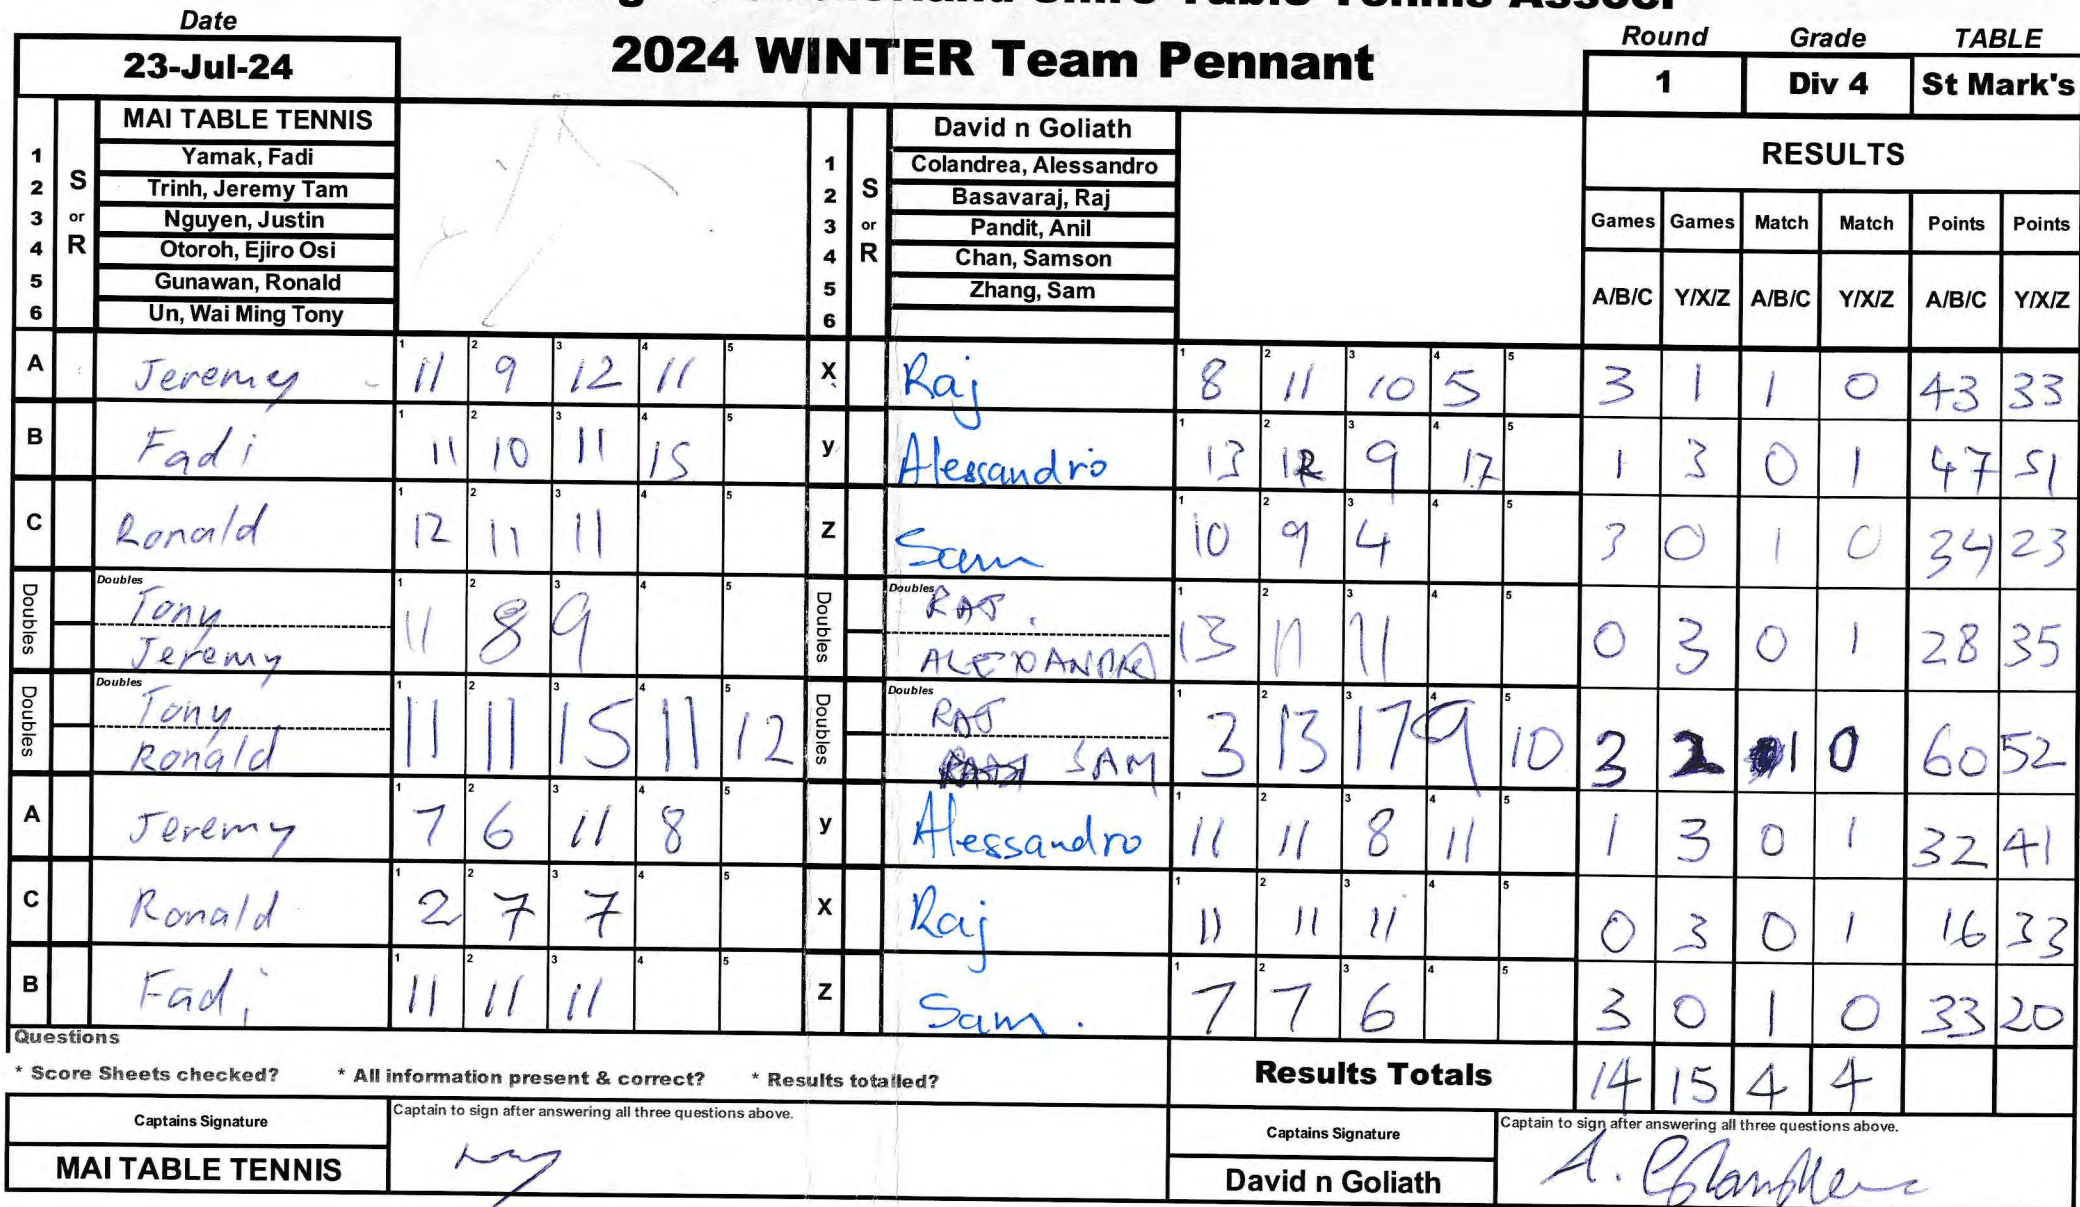 Date
23-Jul-24
2024 WINTER Team Pennant
Round Grade TABLE
1 Div 4 St Mark's
MAI TABLE TENNIS
1 Yamak, Fadi
2 Trinh, Jeremy Tam
3 Nguyen, Justin
4 Otoroh, Ejiro Osi
5 Gunawan, Ronald
6 Un, Wai Ming Tony
S or R
David n Goliath
1 Colandrea, Alessandro
2 Basavaraj, Raj
3 Pandit, Anil
4 Chan, Samson
5 Zhang, Sam
6
S or R
RESULTS
Games Games Match Match Points Points
A/B/C Y/X/Z A/B/C Y/X/Z A/B/C Y/X/Z
A Jeremy 1 11 2 9 3 12 4 11 5 X Raj 1 8 2 11 3 10 4 5 5 3 1 1 0 43 33
B Fadi 1 11 2 10 3 11 4 15 5 y Alessandro 1 13 2 12 3 9 4 17 5 1 3 0 1 47 51
C Ronald 1 12 2 11 3 11 4 5 Z Sam 1 10 2 9 3 4 4 5 3 0 1 0 34 23
Doubles Doubles Tony Jeremy 1 11 2 8 3 9 4 5 Doubles Doubles RAJ. ALEXANDRO 1 13 2 11 3 11 4 5 0 3 0 1 28 35
Doubles Doubles Tony Ronald 1 11 2 11 3 15 4 11 5 12 Doubles Doubles RAJ SAM 1 3 2 13 3 17 4 9 5 10 3 2 1 0 60 52
A Jeremy 1 7 2 6 3 11 4 8 5 y Alessandro 1 11 2 11 3 8 4 11 5 1 3 0 1 32 41
C Ronald 1 2 2 7 3 7 4 5 X Raj 1 11 2 11 3 11 4 5 0 3 0 1 16 33
B Fadi 1 11 2 11 3 11 4 5 Z Sam. 1 7 2 7 3 6 4 5 3 0 1 0 33 20
Questions
* Score Sheets checked? * All information present & correct? * Results totalled?
Results Totals 14 15 4 4
Captains Signature
Captain to sign after answering all three questions above.
MAI TABLE TENNIS
Captains Signature
Captain to sign after answering all three questions above.
David n Goliath